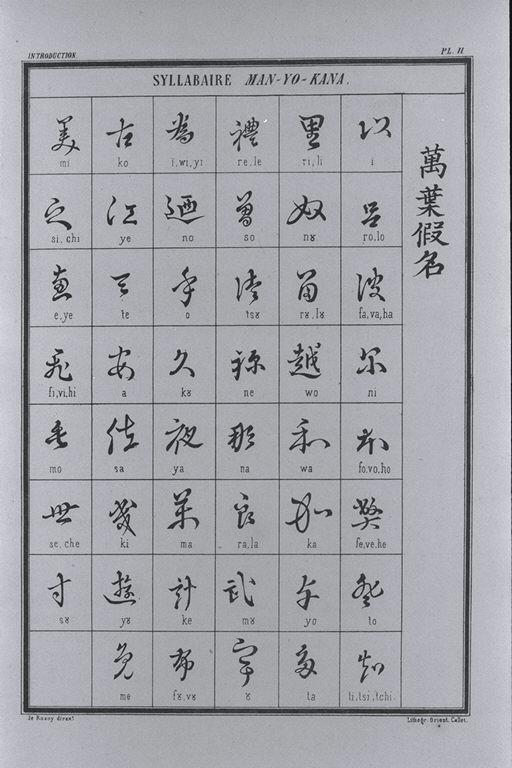 INTRODUCTION.
PL. II
SYLLABAIRE MAN-YO-KANA.
萬葉假名
美 古 為 禮 里 以
mi ko i,wi,yi re,le ri,li i
之 江 廼 曽 奴 呂
si,chi ye no so nȣ ro,lo
恵 天 乎 津 留 波
e,ye te o tsȣ rȣ,lȣ fa,va,ha
飛 安 久 祢 越 尓
fi,vi,hi a kȣ ne wo ni
毛 佐 夜 那 和 本
mo sa ya na wa fo,vo,ho
世 幾 良 加
se,che ki ma ra,la ka fe,ve,he
寸 遊 計 武 与 登
sȣ yȣ ke mȣ yo to
免 布 宇 多 知
me fȣ,vȣ ȣ ta ti,tsi,tchi.
de Rosny dirext
Lithogr. Orient. Callet.